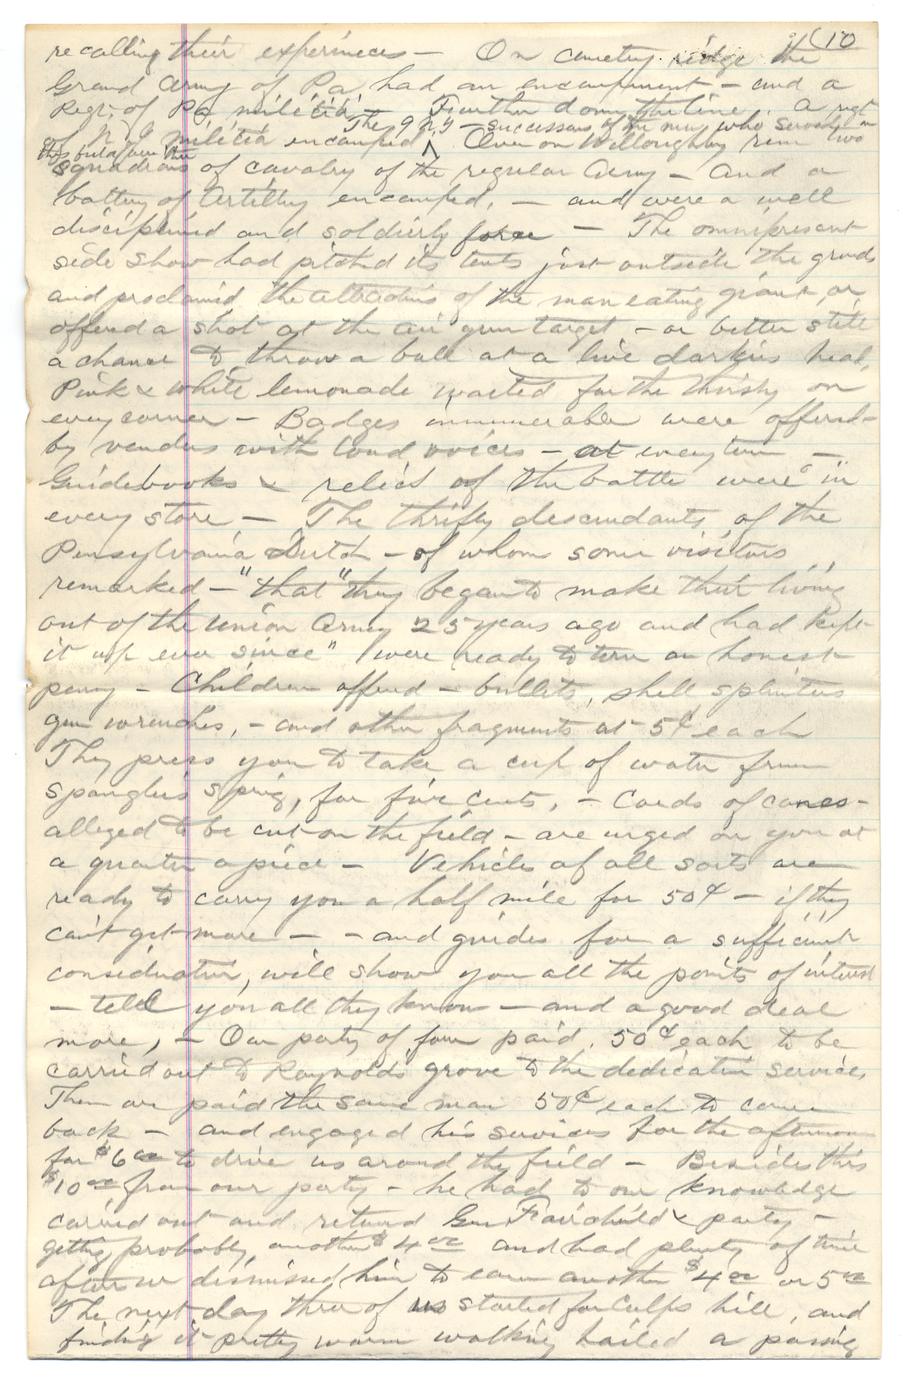 (10
recalling their experinces — On cemetry ridge the
Grand Army of Pa had an encampment — and a
Regt. of Pa militia — Further down the line, A regt
of N.J. militia encamped ^ Over on Willoughby run two
The 9 N.Y — successors of the men who served in
this butalion the
squadrons of cavalry of the regular Army — And a
battery of Artillry encamped, — and were a well
disciplined and soldierly force — The omnipresent
side show had pitchd its tents just outside the grnds
and proclaimd the attractions of the man eating giant, or
offered a shot at the air gun target — or better still
a chance to throw a ball at a live darkies head,
Pink & white lemonade waited for the thirsty on
every corner — Badges innumerable were offered
by vendors with loud voices — at every turn —
Guidebooks & relics of the battle were in
every store — The thrifty descendants of the
Pensylvania Dutch — of whom some visitors
remarked — "that" they began to make their living
out of the Union Army 25 years ago and had kept
it up ever since" were ready to turn an honest
penny — Children offered — bullets, shell splinters
gun wrenches, — and other fragments at 5¢ each
They press you to take a cup of water from
Spanglers Spring, for five cents, — Cords of canes —
alleged to be cut on the field — are urged on you at
a quarter a piece — Vehicles of all sorts are
ready to carry you a half mile for 50¢ — if they
can't get more — — and guides for a sufficient
consideration, will show you all the points of interest
— tell you all they know — and a good deal
more, — Our party of four paid, 50¢ each to be
carried out to Raynolds grove to the dedication service,
Then we paid the same man 50¢ each to come
back — and engaged his services for the afternoon
for $6 00 to drive us around the field — Besides this
$10 00 from our party — he had to our knowledge
carried out and returnd Gen Fairchild & party —
getting probably another $4 00 and had plenty of time
after we dismissed him to earn another $4 00 or 5 00
The next day three of us started for Culps hill, and
finding it pretty warm walking hailed a passing